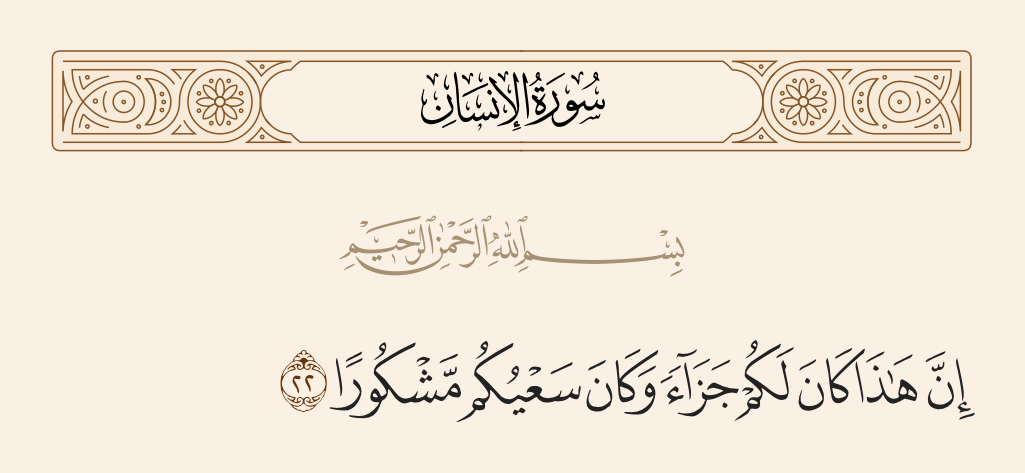 سُورَةُ الإِنسَانِ
بِسْمِ ٱللَّهِ ٱلرَّحْمَٰنِ ٱلرَّحِيمِ
إِنَّ هَٰذَا كَانَ لَكُمْ جَزَآءً وَكَانَ سَعْيُكُم مَّشْكُورًا ٢٢